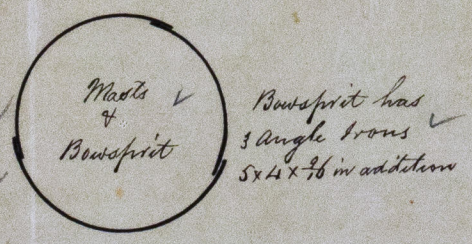 Masts
&
Bowsprit
Bowsprit has
3 Angle Irons
5x4x9/16 in addition